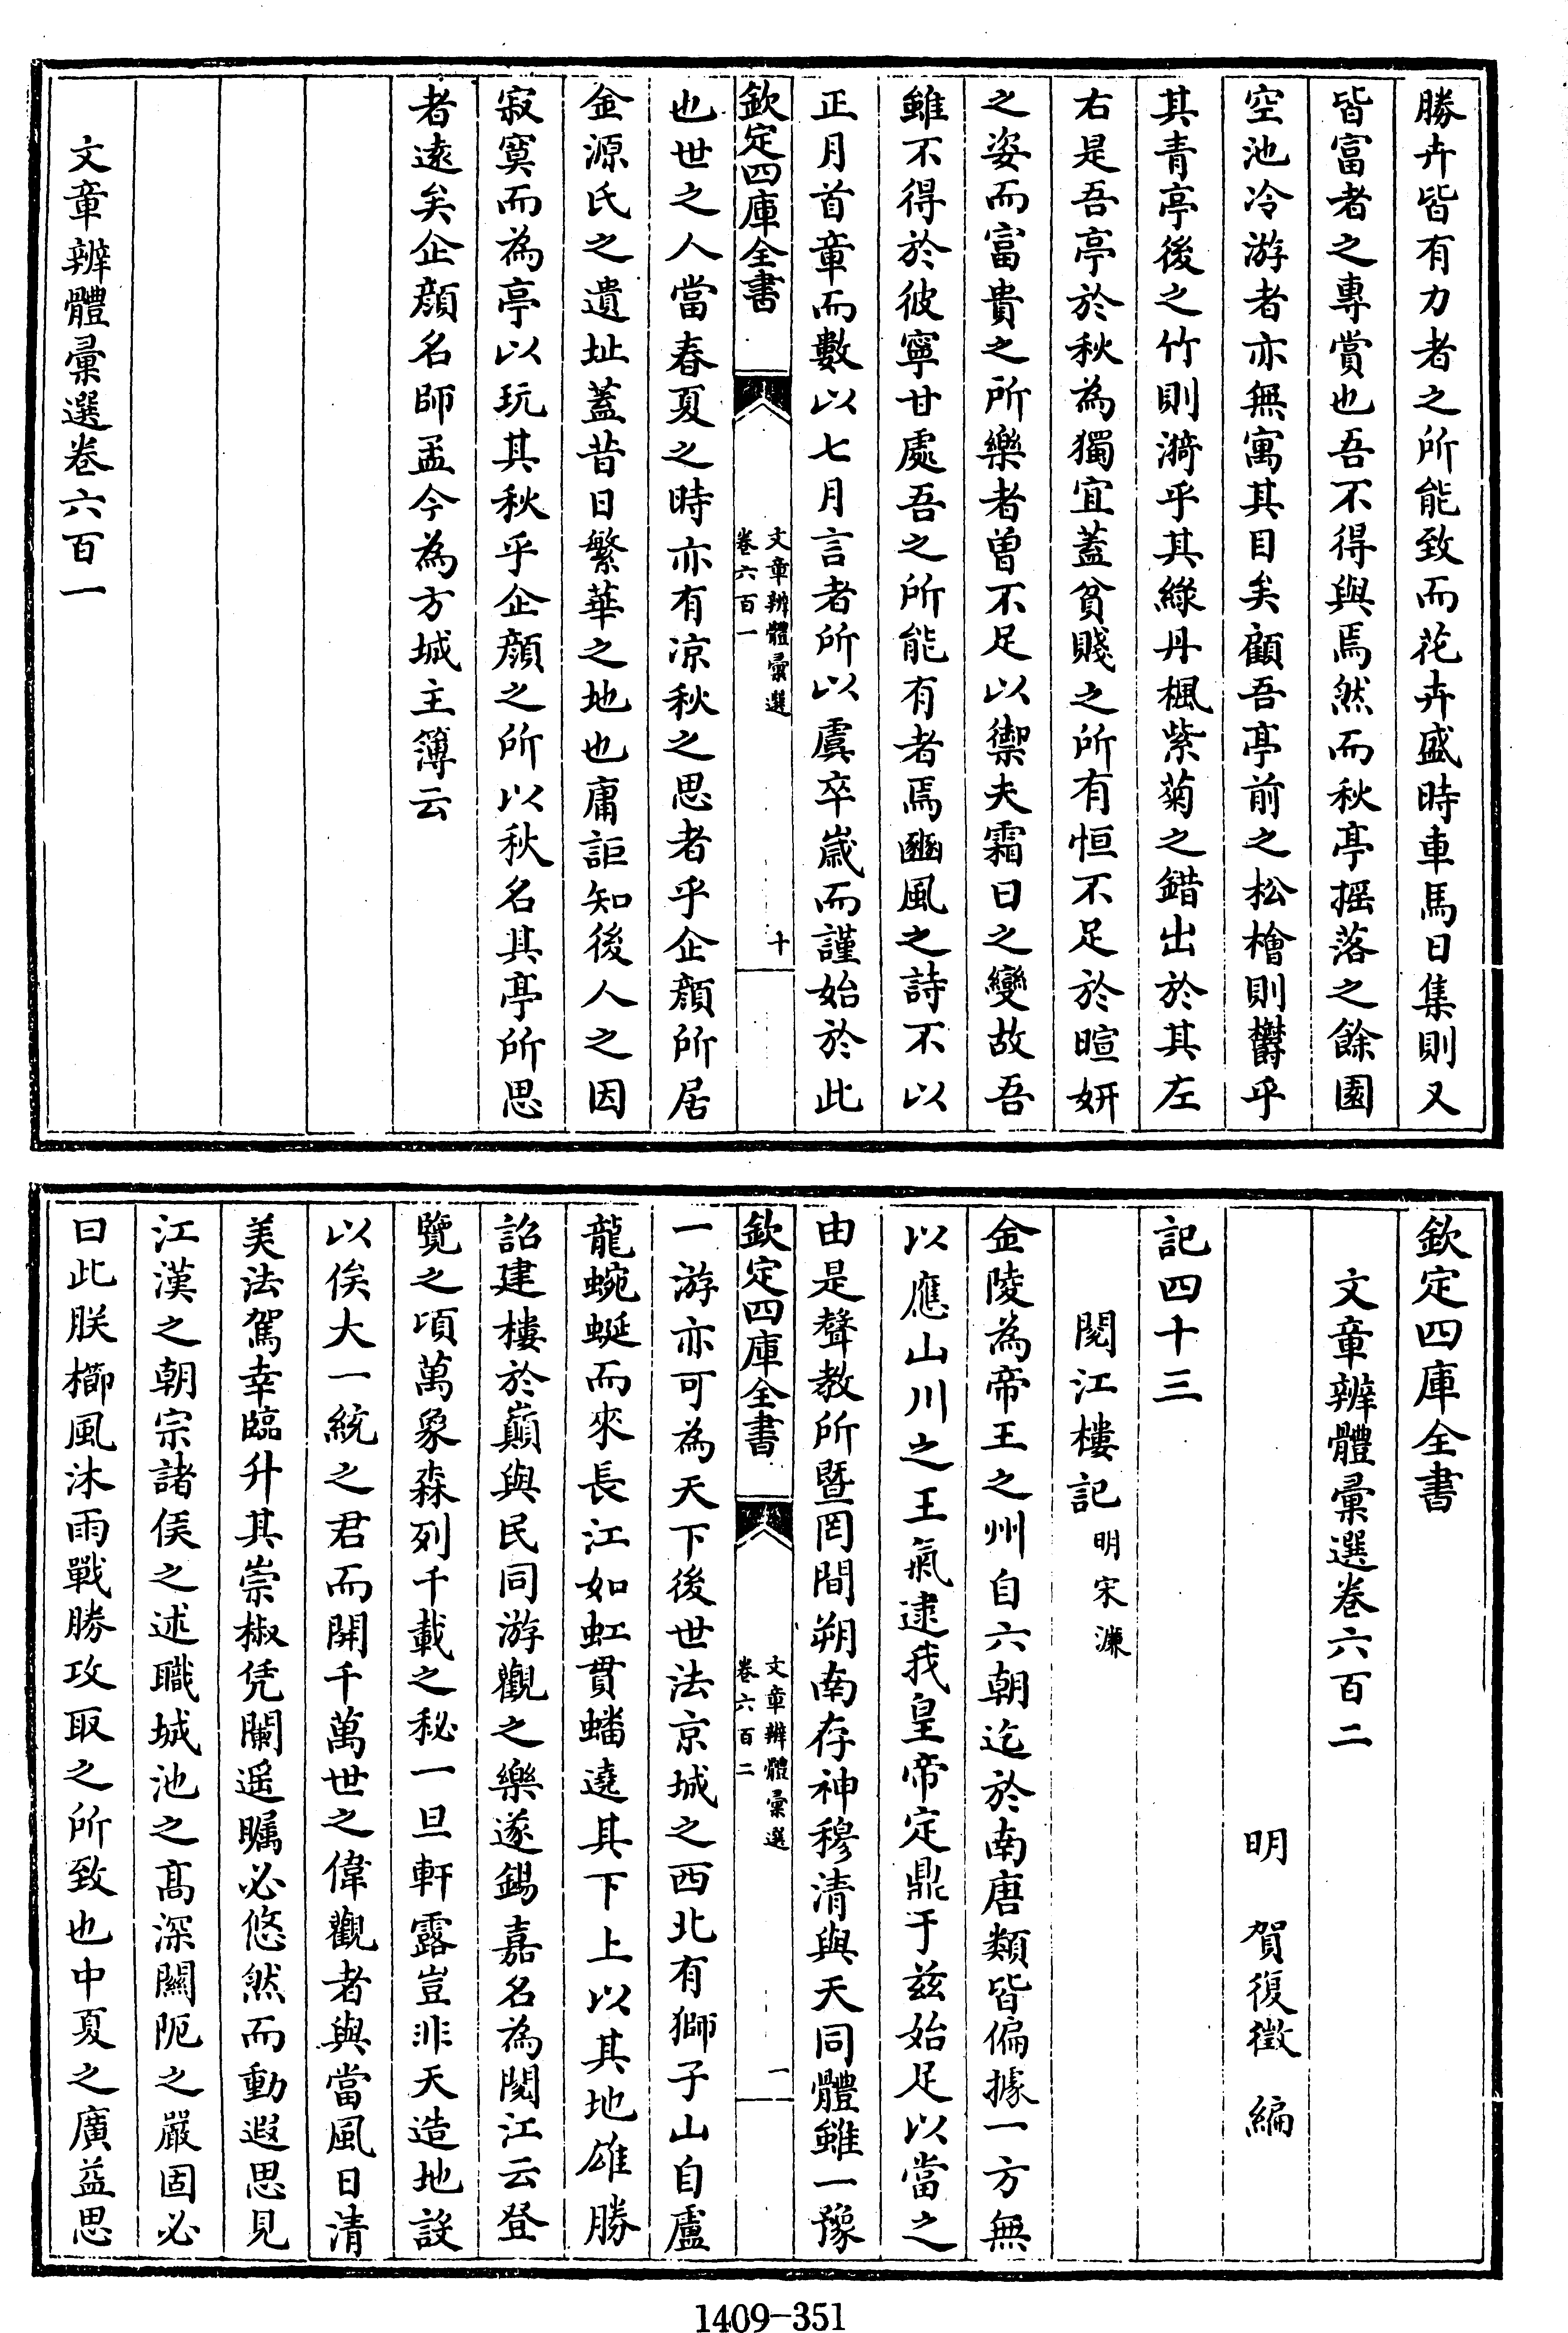 勝卉皆有力者之所能致而花卉盛時車馬日集則又
皆富者之專賞也吾不得與焉然而秋亭搖落之餘園
空池冷游者亦無寓其目矣顧吾亭前之松檜則欝乎
其青亭後之竹則漪乎其綠丹楓紫菊之錯出於其左
右是吾亭於秋為獨宜蓋貧賤之所有恒不足於暄妍
之姿而富貴之所樂者曽不足以禦夫霜日之變故吾
雖不得於彼寧甘處吾之所能有者焉豳風之詩不以
正月首章而數以七月言者所以虞卒歲而謹始於此
欽定四庫全書
文章辨體彚選
卷六百一
十
也世之人當春夏之時亦有涼秋之思者乎企顏所居
金源氏之遺址蓋昔日繁華之地也庸詎知後人之因
寂寞而為亭以玩其秋乎企顏之所以秋名其亭所思
者遠矣企顏名師孟今為方城主簿云
文章辨體彚選卷六百一
欽定四庫全書
文章辨體彚選卷六百二
明 賀復徵 編
記四十三
閱江樓記明宋濂
金陵為帝王之州自六朝迄於南唐類皆偏據一方無
以應山川之王氣逮我皇帝定鼎于兹始足以當之
由是聲教所暨罔間朔南存神穆清與天同體雖一豫
欽定四庫全書
文章辨體彚選
卷六百二
一
一游亦可為天下後世法京城之西北有獅子山自盧
龍蜿蜒而來長江如虹貫蟠遶其下上以其地雄勝
詔建樓於巔與民同游觀之樂遂錫嘉名為閱江云登
覽之頃萬象森列千載之秘一旦軒露豈非天造地設
以俟大一統之君而開千萬世之偉觀者與當風日清
美法駕幸臨升其崇椒凭闌遥矚必悠然而動遐思見
江漢之朝宗諸侯之述職城池之髙深關阨之嚴固必
曰此朕櫛風沐雨戰勝攻取之所致也中夏之廣益思
1409-351